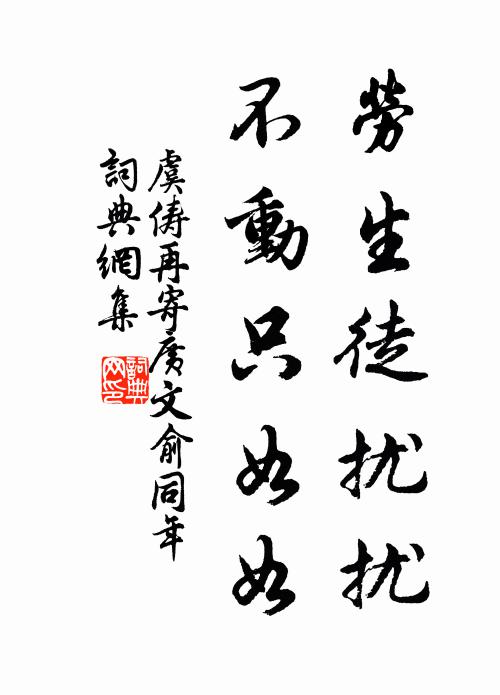 勞生徒扰扰
不動只如如
虞俦再寄廣文俞同年
詞典網集
詞典网印